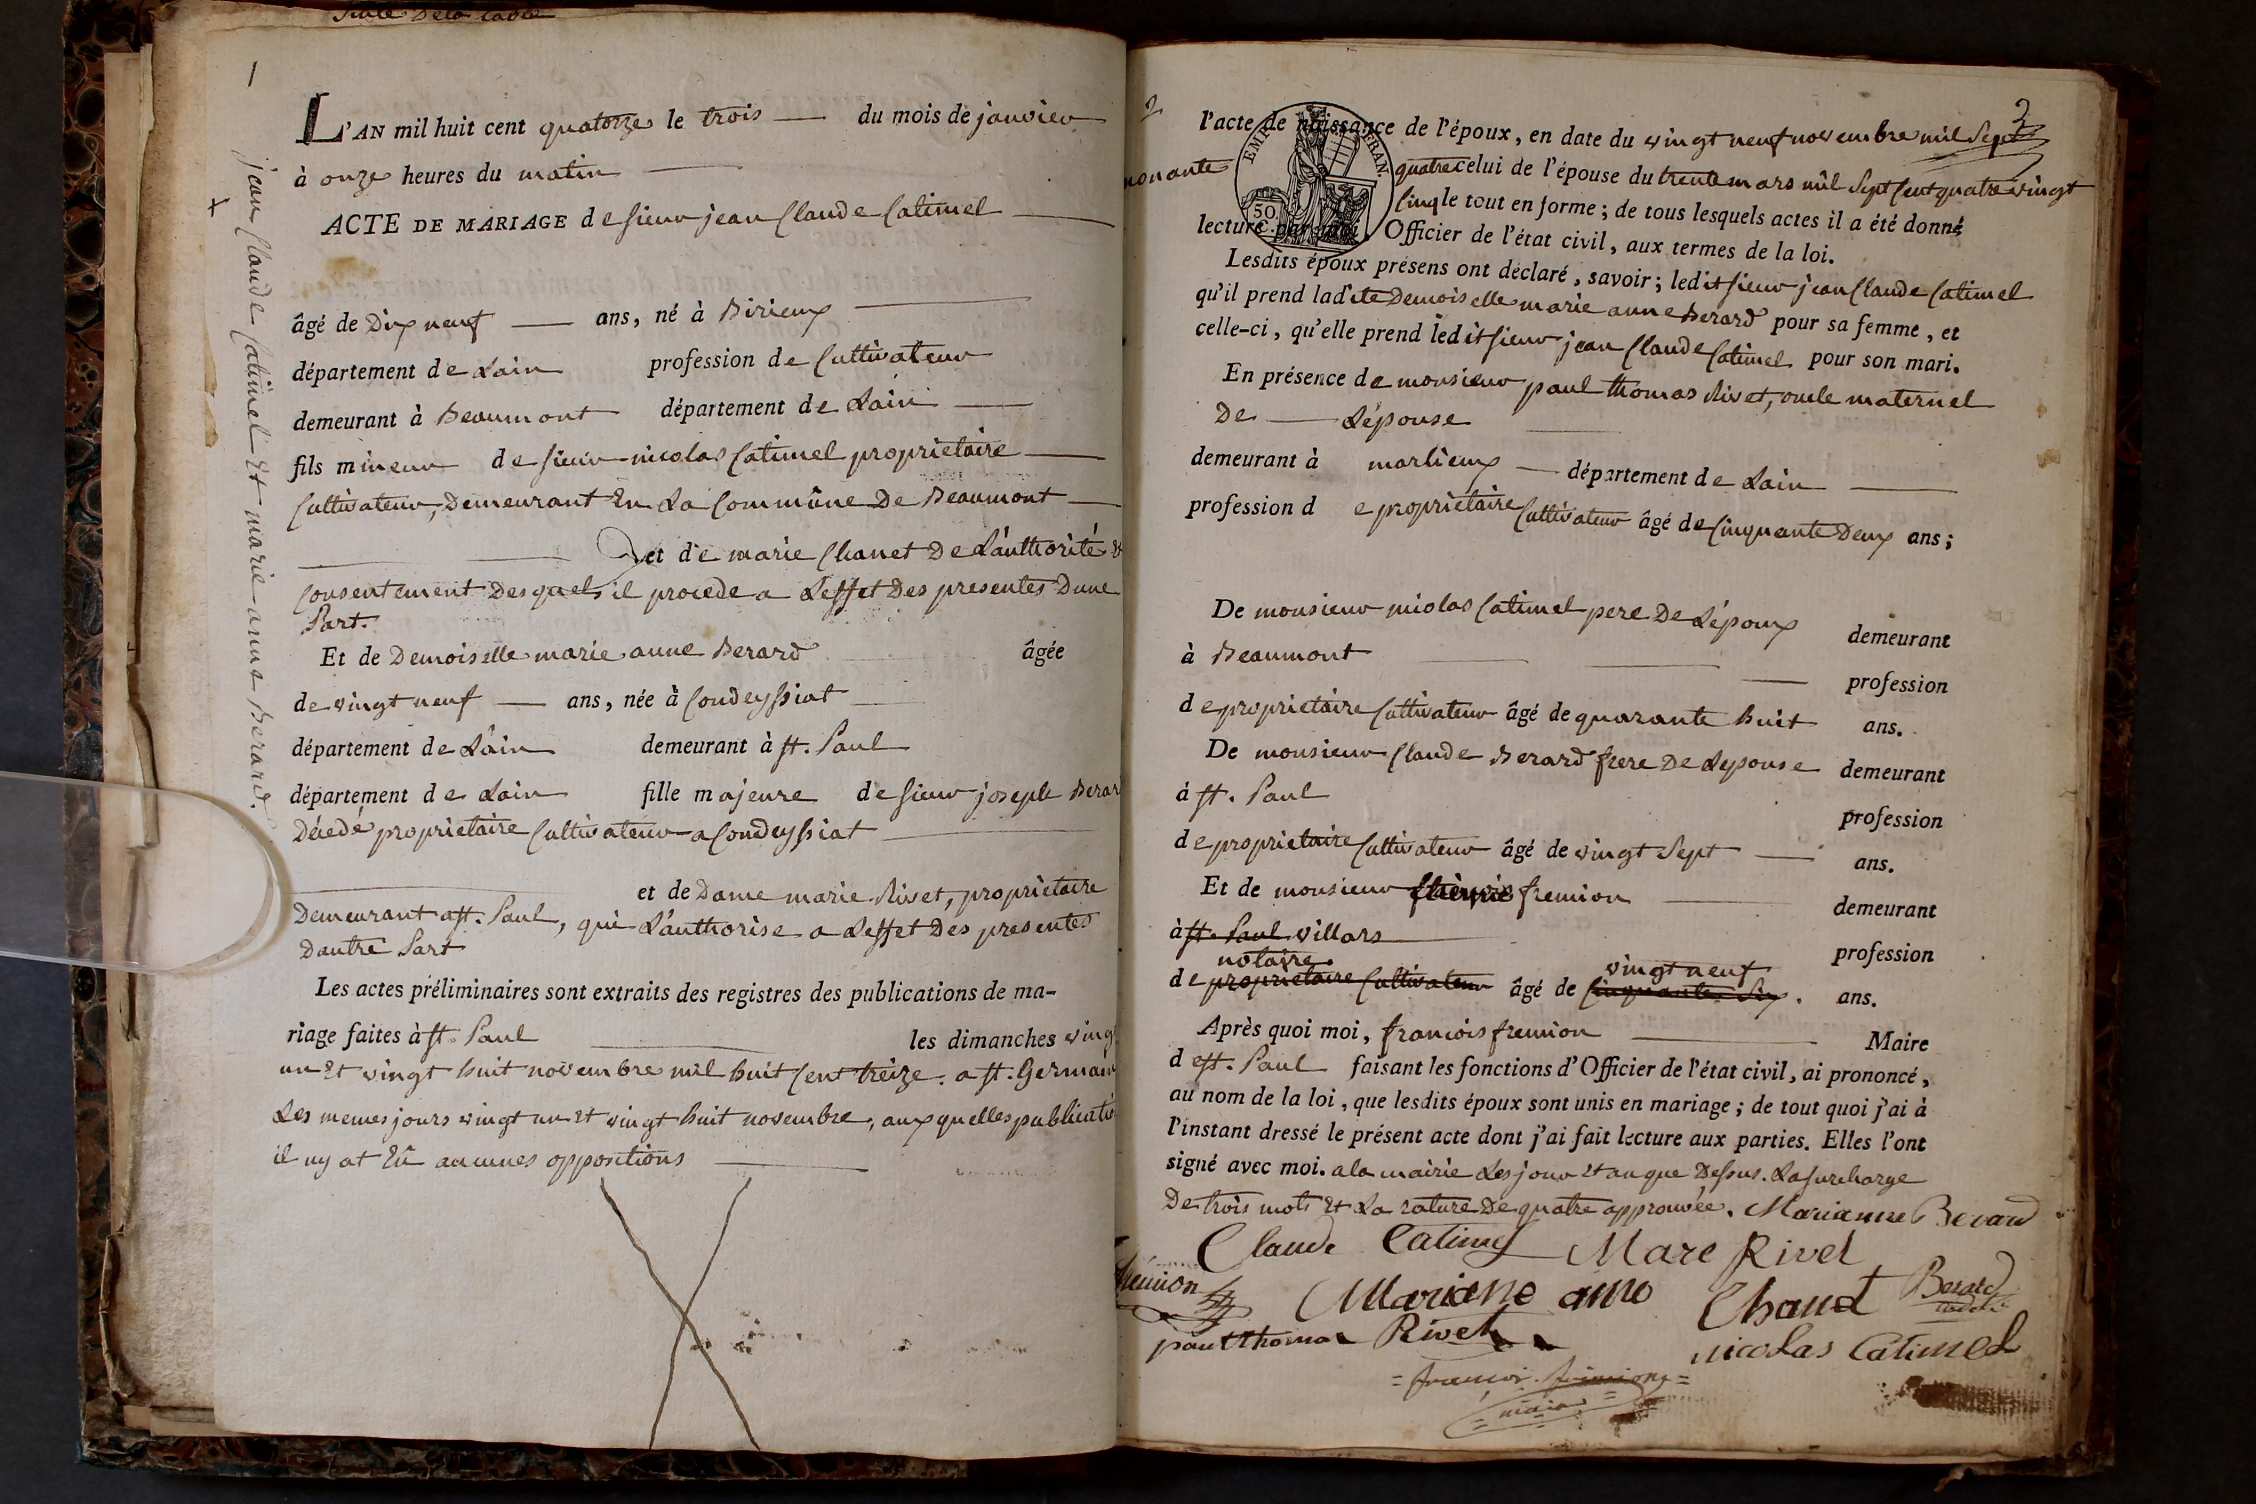 Suite De la table
1
L'AN mil huit cent quatorze le trois du mois de janvier
à onze heures du matin
ACTE DE MARIAGE de sieur jean Claude Catimel
âgé de Dix neuf ans, né à Birieux
département de Lain profession de Cultivateur
demeurant à Beaumont département de Lain
fils mineur de sieur nicolas Catimel proprietaire
Cultivateur, Demeurant En La Commune De Beaumont
et de marie Chanet De Lauthorité et
Consentement Desquels il procede a Leffet Des presentes Dune
Part.
Et de Demoiselle marie anne Berard âgée
de vingt neuf ans, née à Condeyssiat
département de Lain demeurant à st. Paul
département de Lain fille majeure de sieur joseph Berard
Décedé proprietaire Cultivateur a Condeyssiat
et de Dame marie Rivet, proprietaire
Demeurant a st. Paul, qui Lauthorise a Leffet Des presentes
Dautre Part
Les actes préliminaires sont extraits des registres des publications de ma-
riage faites à st. Paul les dimanches vingt
un et vingt huit novembre mil huit Cent treize. a st. Germain
Les memes jours vingt un et vingt huit novembre, auxquelles publicatio
il ny at Eû aucunes oppositions
jean Claude Catimel et marie anne Berard.
+
2
3
l'acte de naissance de l'époux, en date du vingt neuf novembre mil Sept
nonante quatre celui de l'épouse du trente mars mil Sept Cent quatre vingt
Cinq le tout en forme ; de tous lesquels actes il a été donné
lecture par moi, Officier de l'état civil, aux termes de la loi.
EMP. FRAN.
50 C.
Lesdits époux présens ont déclaré, savoir ; ledit sieur jean Claude Catimel
qu'il prend ladite Demoiselle marie anne Berard pour sa femme, et
celle-ci, qu'elle prend ledit sieur jean Claude Catimel pour son mari.
En présence de monsieur paul thomas Rivet, oncle maternel
De Lépouse
demeurant à marlieux département de Lain
profession de proprietaire Cultivateur âgé de Cinquante Deux ans ;
De monsieur nicolas Catimel pere De Lépoux demeurant
à Beaumont profession
de proprietaire Cultivateur âgé de quarante huit ans.
De monsieur Claude Berard frere De Lepouse demeurant
à st. Paul profession
de proprietaire Cultivateur âgé de vingt Sept ans.
Et de monsieur fremion demeurant
à st. Paul villars profession
notaire. vingt neuf
de proprietaire Cultivateur âgé de Cinquante Six. ans.
Après quoi moi, francois fremion Maire
de st. Paul faisant les fonctions d'Officier de l'état civil, ai prononcé,
au nom de la loi, que lesdits époux sont unis en mariage ; de tout quoi j'ai à
l'instant dressé le présent acte dont j'ai fait lecture aux parties. Elles l'ont
signé avec moi. a la mairie Les jour et an que Dessus. La surcharge
De trois mots et La rature De quatre approuvée. Marianne Berard
Claude Catimel Mare Rivet
fremion Mariane Chanet Berard
paul thomas Rivet nicolas Catimel
francois fremion
maire